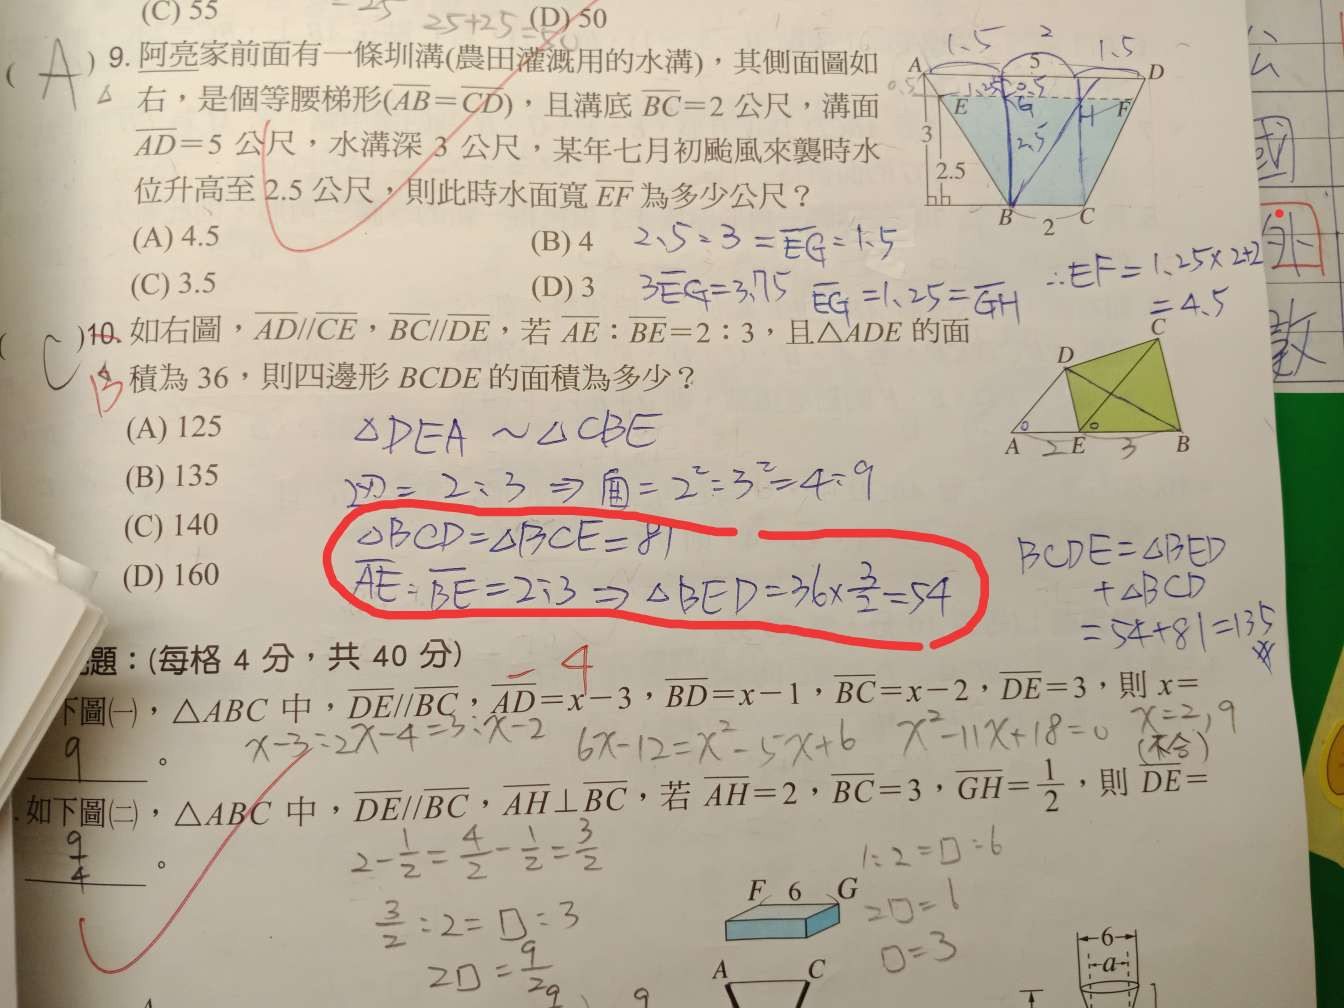 (C) 55
25+25=50
(D) 50
(A) 9. 阿亮家前面有一條圳溝(農田灌溉用的水溝)，其側面圖如
右，是個等腰梯形(AB=CD)，且溝底 BC=2 公尺，溝面
AD=5 公尺，水溝深 3 公尺，某年七月初颱風來襲時水
位升高至 2.5 公尺，則此時水面寬 EF 為多少公尺？
(A) 4.5
(B) 4
(C) 3.5
(D) 3
1.5 2 1.5
A 5 D
0.5 1.25 0.5
E G H F
3 2.5 2.5
B 2 C
2.5:3=EG:1.5
3EG=3.75 EG=1.25=GH
∴EF=1.25×2+2
=4.5
(C) 10. 如右圖，AD//CE，BC//DE，若 AE：BE=2：3，且△ADE 的面
B 積為 36，則四邊形 BCDE 的面積為多少？
(A) 125
(B) 135
(C) 140
(D) 160
C
D
A 2 E 3 B
△DEA ~ △CBE
2:3 ⇒ 面=2²:3²=4:9
△BCD=△BCE=81
AE:BE=2:3 ⇒ △BED=36×3/2=54
BCDE=△BED
+△BCD
=54+81=135
題：(每格 4 分，共 40 分)
-4
下圖㈠，△ABC 中，DE//BC，AD=x−3，BD=x−1，BC=x−2，DE=3，則 x=
9 。
x-3:2x-4=3:x-2
6x-12=x²-5x+6
x²-11x+18=0
x=2,9
(不合)
如下圖㈡，△ABC 中，DE//BC，AH⊥BC，若 AH=2，BC=3，GH=1/2，則 DE=
9/4 。
2-1/2=4/2-1/2=3/2
3/2:2=□:3
2□=9/2
1:2=□:6
2□=6
□=3
F 6 G
A C
6
a
國
外
數